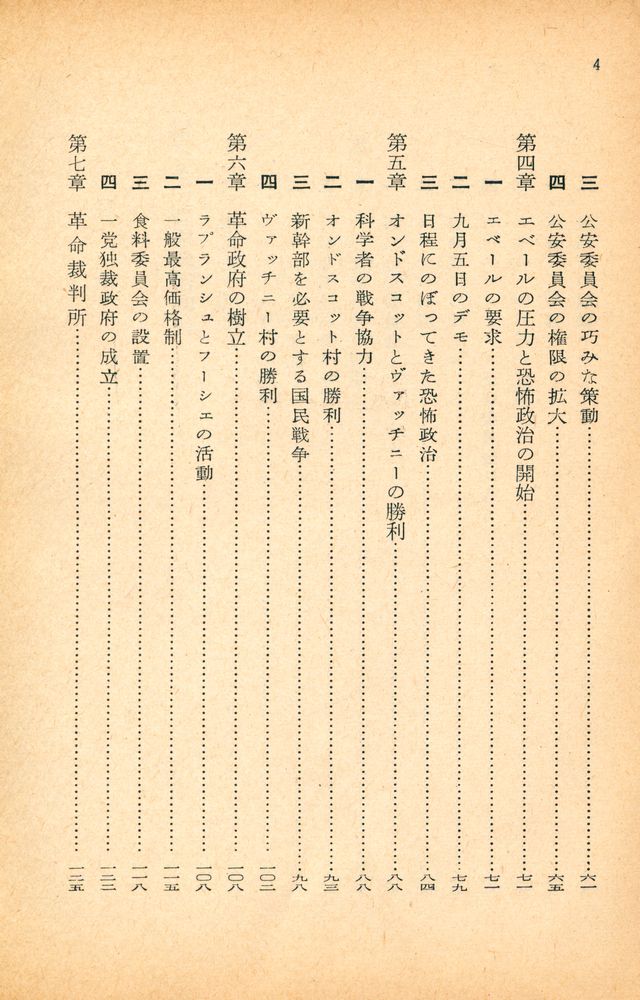 4
三 公安委員会の巧みな策動……六一
四 公安委員会の権限の拡大……六五
第四章 エベールの圧力と恐怖政治の開始……七一
一 エベールの要求……七一
二 九月五日のデモ……七九
三 日程にのぼってきた恐怖政治……八四
第五章 オンドスコットとヴァッチニーの勝利……八八
一 科学者の戦争協力……八八
二 オンドスコット村の勝利……九三
三 新幹部を必要とする国民戦争……九八
四 ヴァッチニー村の勝利……一〇二
第六章 革命政府の樹立……一〇八
一 ラプランシュとフーシェの活動……一〇八
二 一般最高価格制……一一五
三 食料委員会の設置……一一八
四 一党独裁政府の成立……一二二
第七章 革命裁判所……一二五